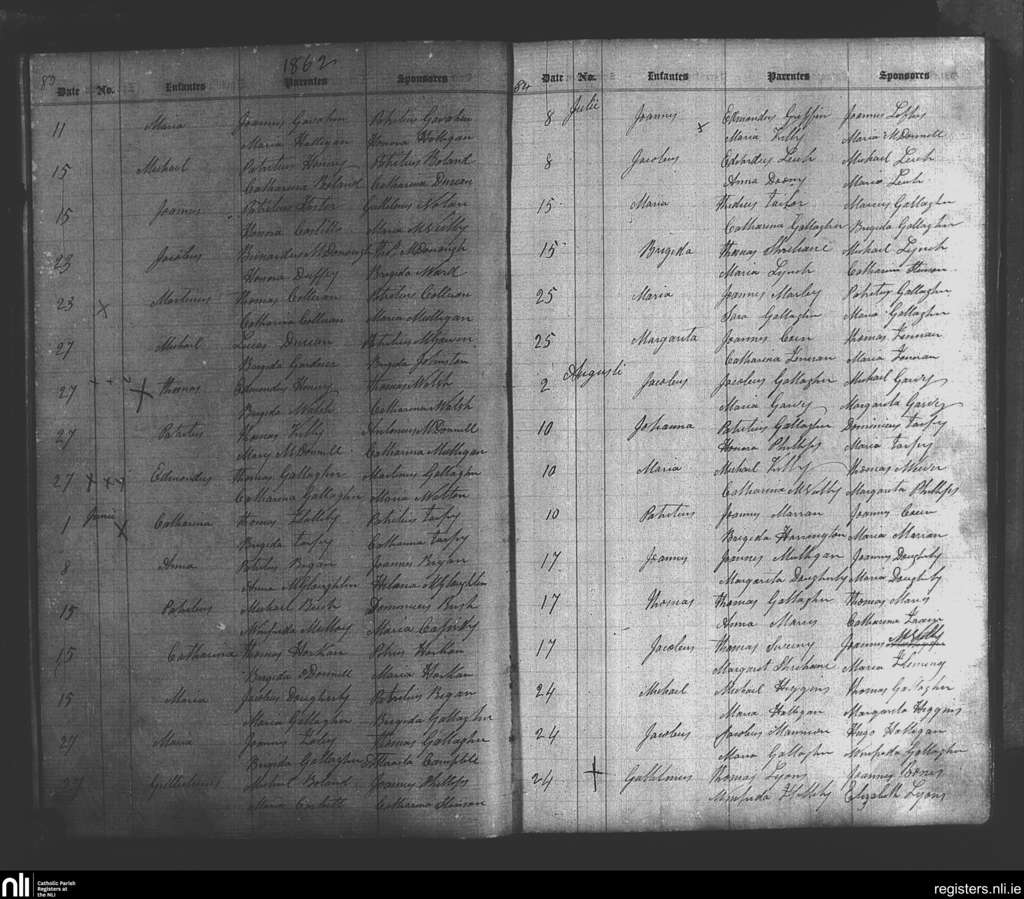 83
1862
Date No. Infantes Parentes Sponsores
11 Maria Joannes Gavahan Patritius Gavahan
Maria Halligan Honora Halligan
15 Michael Patritius Henry Patritius Boland
Catharina Boland Catharina Duncan
15 Joannes Patritius Gullelmus Nolan
Honora Costello Maria
23 Jacobus Bernardus McDonough Thos. McDonough
Honora Duffy Brigida Ward
23 x Martinus Thomas Colleran Patritius Colleran
Catharina Colleran Maria Mulligan
27 Michael Lucas Duncan Patritius
Brigida Gardner Brigida Johnston
27 Thomas Edmundus Henry Thomas Walsh
Brigida Walsh Catharina Walsh
27 Patritius Thomas Kilby Antonius McDonnell
Mary McDonnell Catharina Mulligan
27 Edmondus Thomas Gallagher Martinus Gallagher
Catharina Gallagher Maria Walton
1 Junii x Catharina Thomas Flatley Patritius Tarpy
Brigida Tarpy Catharina Tarpy
8 Anna Patritius Began Joannes Began
Anna McGloughlin Helena McGloughlin
15 Patritius Michael Bush Dominicus Bush
Winifrida Mullany Maria Cafferky
15 Catharina Thomas Horkan Petrus Horkan
Brigida O'Donnell Maria Horkan
15 Maria Jacobus Dougherty Patritius Began
Maria Gallagher Brigida Gallagher
27 Maria Joannes Foley Thomas Gallagher
Brigida Gallagher Maria Campble
27 Gullielmus Michael Boland Joannes Phillips
Maria Costello Catharina Henson
84
Date No. Infantes Parentes Sponsores
8 Julii Joannes x Edmondus Griffin Joannes Loftus
Maria Kilby Maria McDonnell
8 Jacobus Edvardus Leech Michael Leech
Anna Deany Maria Leech
15 Maria Thadeus Taifor Marcus Gallagher
Catharina Gallagher Brigida Gallagher
15 Brigida Thomas Shrehane Michael Lynch
Maria Lynch Catharina Henson
25 Maria Joannes Marley Patritius Gallagher
Sara Gallagher Maria Gallagher
25 Margarita Joannes Coen Thomas Feneran
Catharina Feneran Maria Feneran
2 Augusti Jacobus Jacobus Gallagher Michael Garvy
Maria Garvy Margarita Garvy
10 Johanna Patritius Gallagher Dominicus Tarpy
Honora Phillips Maria Tarpy
10 Maria Michael Kilby Thomas
Catharina Margarita Phillips
10 Patritius Joannes Marran Joannes Coen
Brigida Harrington Maria Marian
17 Joannes Joannes Mulligan Joannes Dougherty
Margarita Dougherty Maria Dougherty
17 Thomas Thomas Gallagher Thomas Maris
Anna Maris Catharina
17 Jacobus Thomas Sweeny Joannes
Margaret Shrehane Maria Fleming
24 Michael Michael Higgins Thomas Gallagher
Maria Halligan Margarita Higgins
24 Jacobus Jacobus Hannion Hugo Halligan
Maria Gallagher Winifrida Gallagher
24 + Gullelmus Thomas Lyons Joannes
Winifrida Flatley Elizabeth Lyons
nli Catholic Parish
Registers at
the NLI
registers.nli.ie